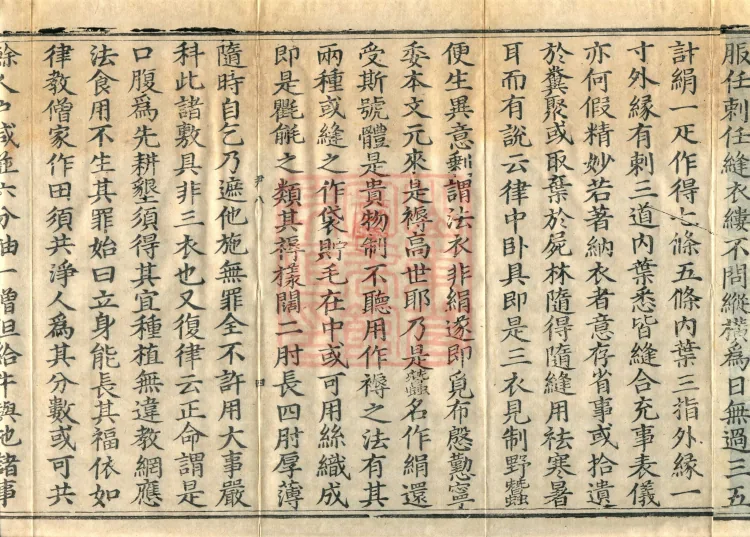 服任刺任縫衣縷不問縱橫為日無過三五
計絹一疋作得七條五條內葉三指外緣一
寸外緣有刺三道內葉悉皆縫合充事表儀
亦何假精妙若著納衣者意存省事或拾遺
於糞聚或取棄於屍林隨得隨縫用袪寒暑
耳而有說云律中臥具即是三衣見制野蠶
便生異意剩謂法衣非絹遂即覓布慇懃寧
委本文元來是褥高世耶乃是蠶名作絹還
受斯號體是貴物制不聽用作褥之法有其
兩種或縫之作袋貯毛在中或可用絲織成
即是氍毹之類其褥樣闊二肘長四肘厚薄
隨時自乞乃遮他施無罪全不許用大事嚴
科此諸敷具非三衣也又復律云正命謂是
口腹為先耕墾須得其宜種植無違教網應
法食用不生其罪始曰立身能長其福依如
律教僧家作田須共淨人為其分數或可共
餘人戶咸並六分抽一僧但給牛與地諸事
尹八